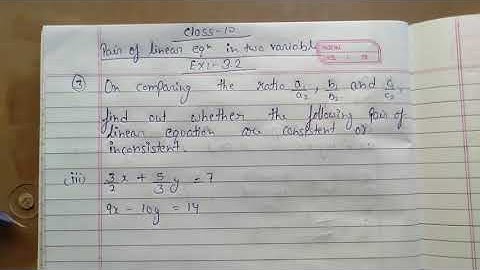 Class-10
Pair of linear eqn in two variable
Ex:-3.2
(3) On comparing the ratio a₁/a₂, b₁/b₂ and c₁/c₂,
find out whether the following pair of
linear equation are consistent or
inconsistent.
(iii) 3/2x + 5/3y = 7
9x - 10y = 14